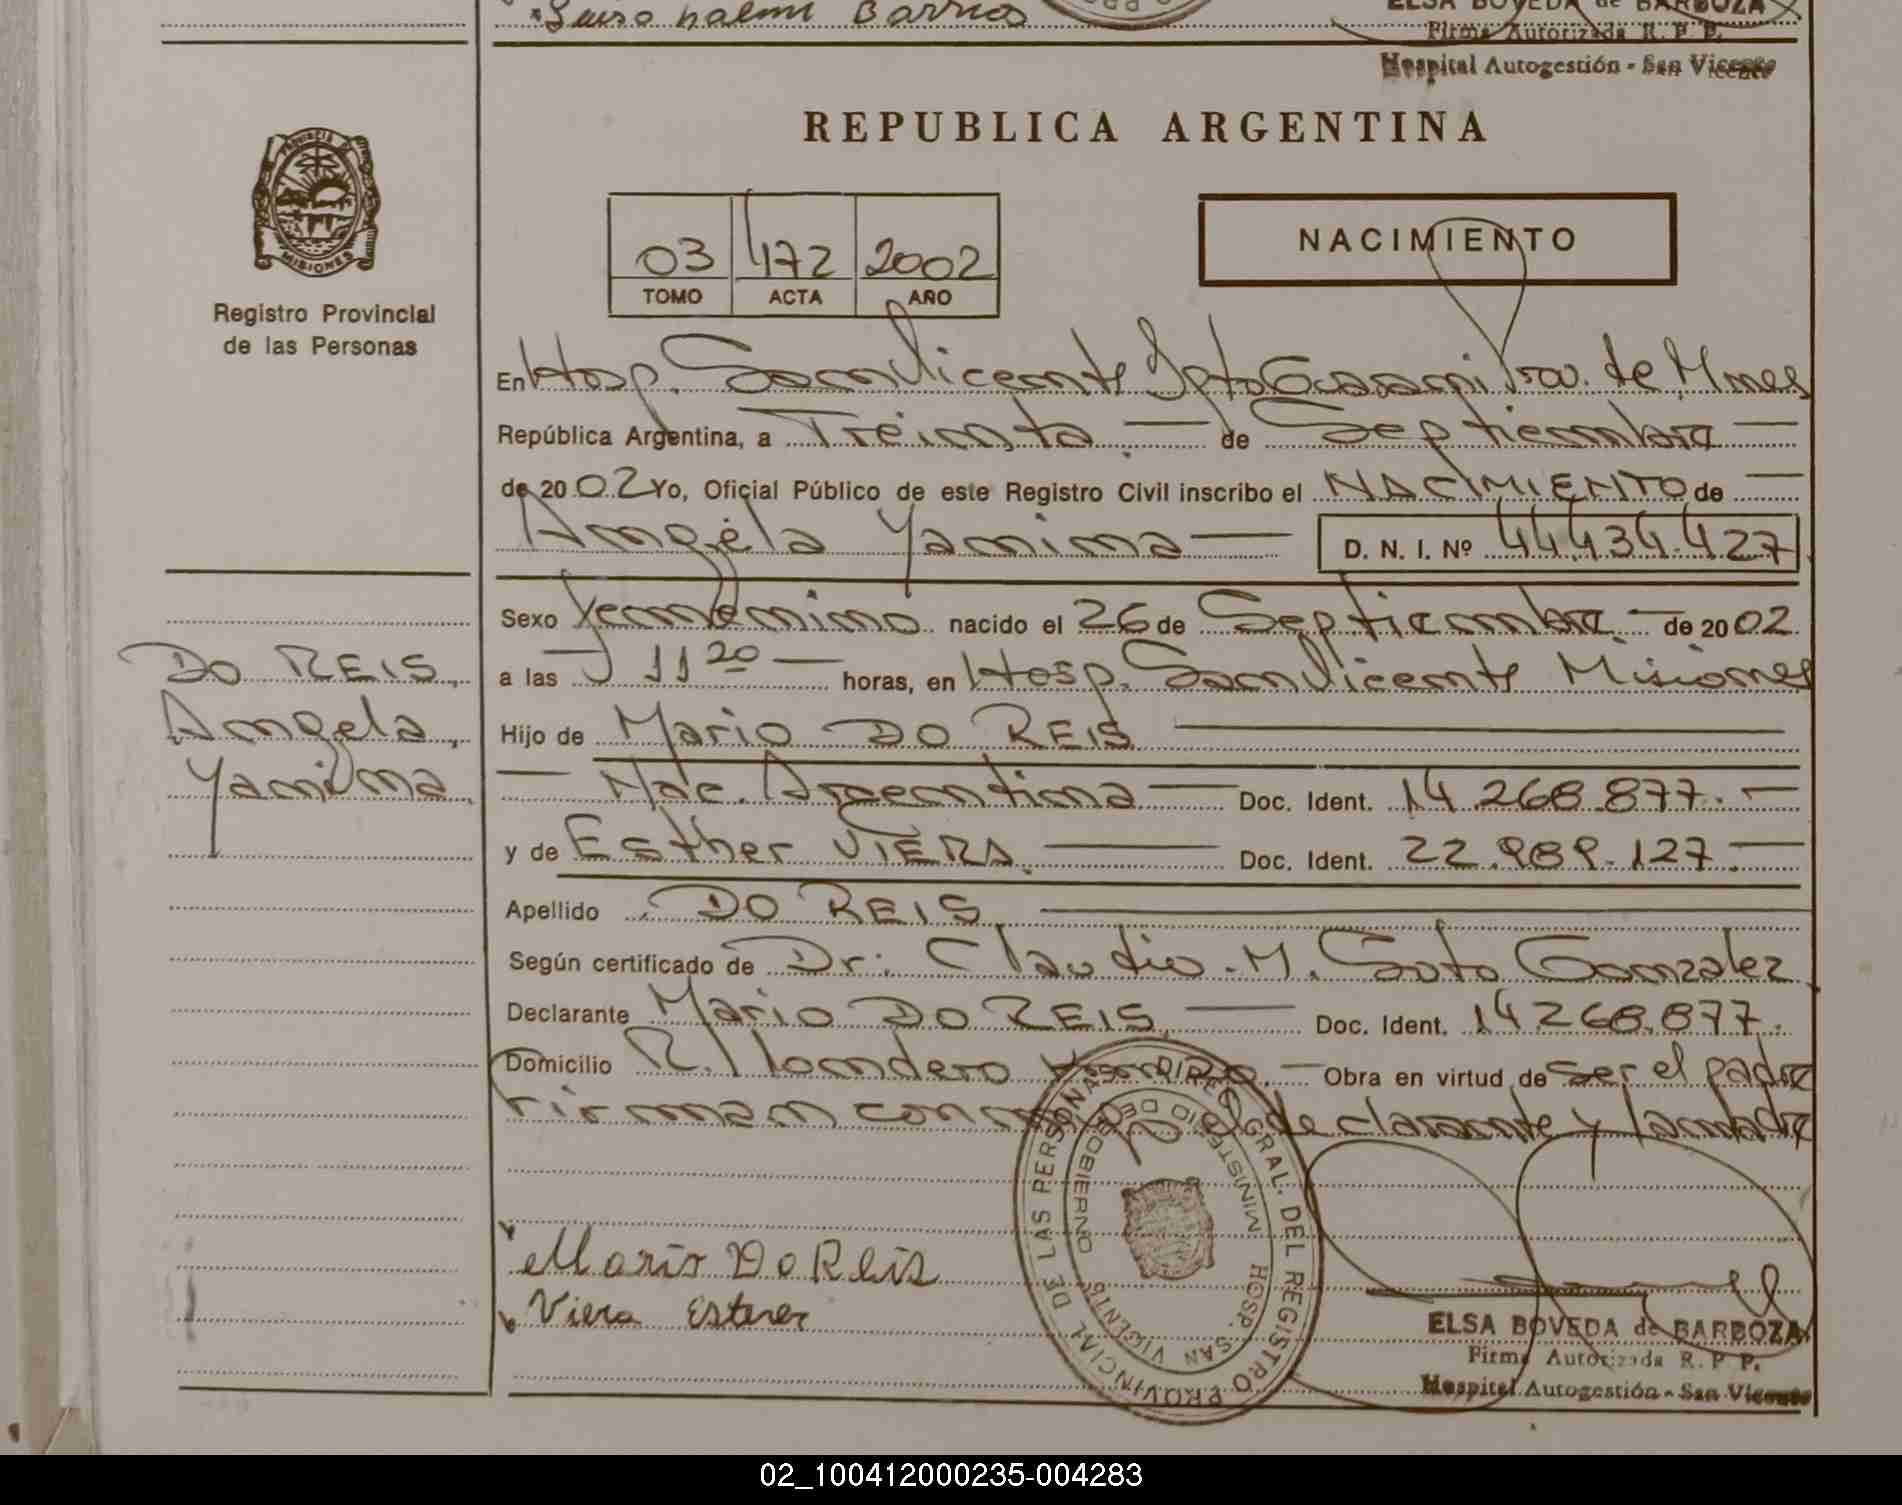 Luisa
ELSA BOVEDA de BARBOZA
Firma Autorizada R. P. P.
Hospital Autogestión - San Vicente
REPUBLICA ARGENTINA
PROVINCIA DE
MISIONES
Registro Provincial
de las Personas
03 172 2002
TOMO ACTA AÑO
NACIMIENTO
En Hosp. San Vicente Dpto Guarani Prov. de Mnes
República Argentina, a Treinta de Septiembre
de 2002 Yo, Oficial Público de este Registro Civil inscribo el NACIMIENTO de
Angela Yanina D. N. I. Nº 44.434.427
Sexo femenino nacido el 26 de Septiembre de 2002
a las 11 20 horas, en Hosp. San Vicente Misiones
Hijo de Mario DO REIS
Nac. Argentina Doc. Ident. 14.268.877.
y de Esther VIERA Doc. Ident. 22.989.127.
Apellido DO REIS
Según certificado de Dr. Claudio M. Soto Gonzalez
Declarante Mario DO REIS Doc. Ident. 14.268.877.
Domicilio Obra en virtud de ser el padre
Firman conmigo el declarante y la madre
DO REIS,
Angela,
Yanina.
Mario Do Reis
Viera Ester
DIREC. GRAL. DEL REGISTRO PROVINCIAL DE LAS PERSONAS
MINISTERIO DE GOBIERNO
HOSP. SAN VICENTE
ELSA BOVEDA de BARBOZA
Firma Autorizada R. P. P.
Hospital Autogestión - San Vicente
02_100412000235-004283